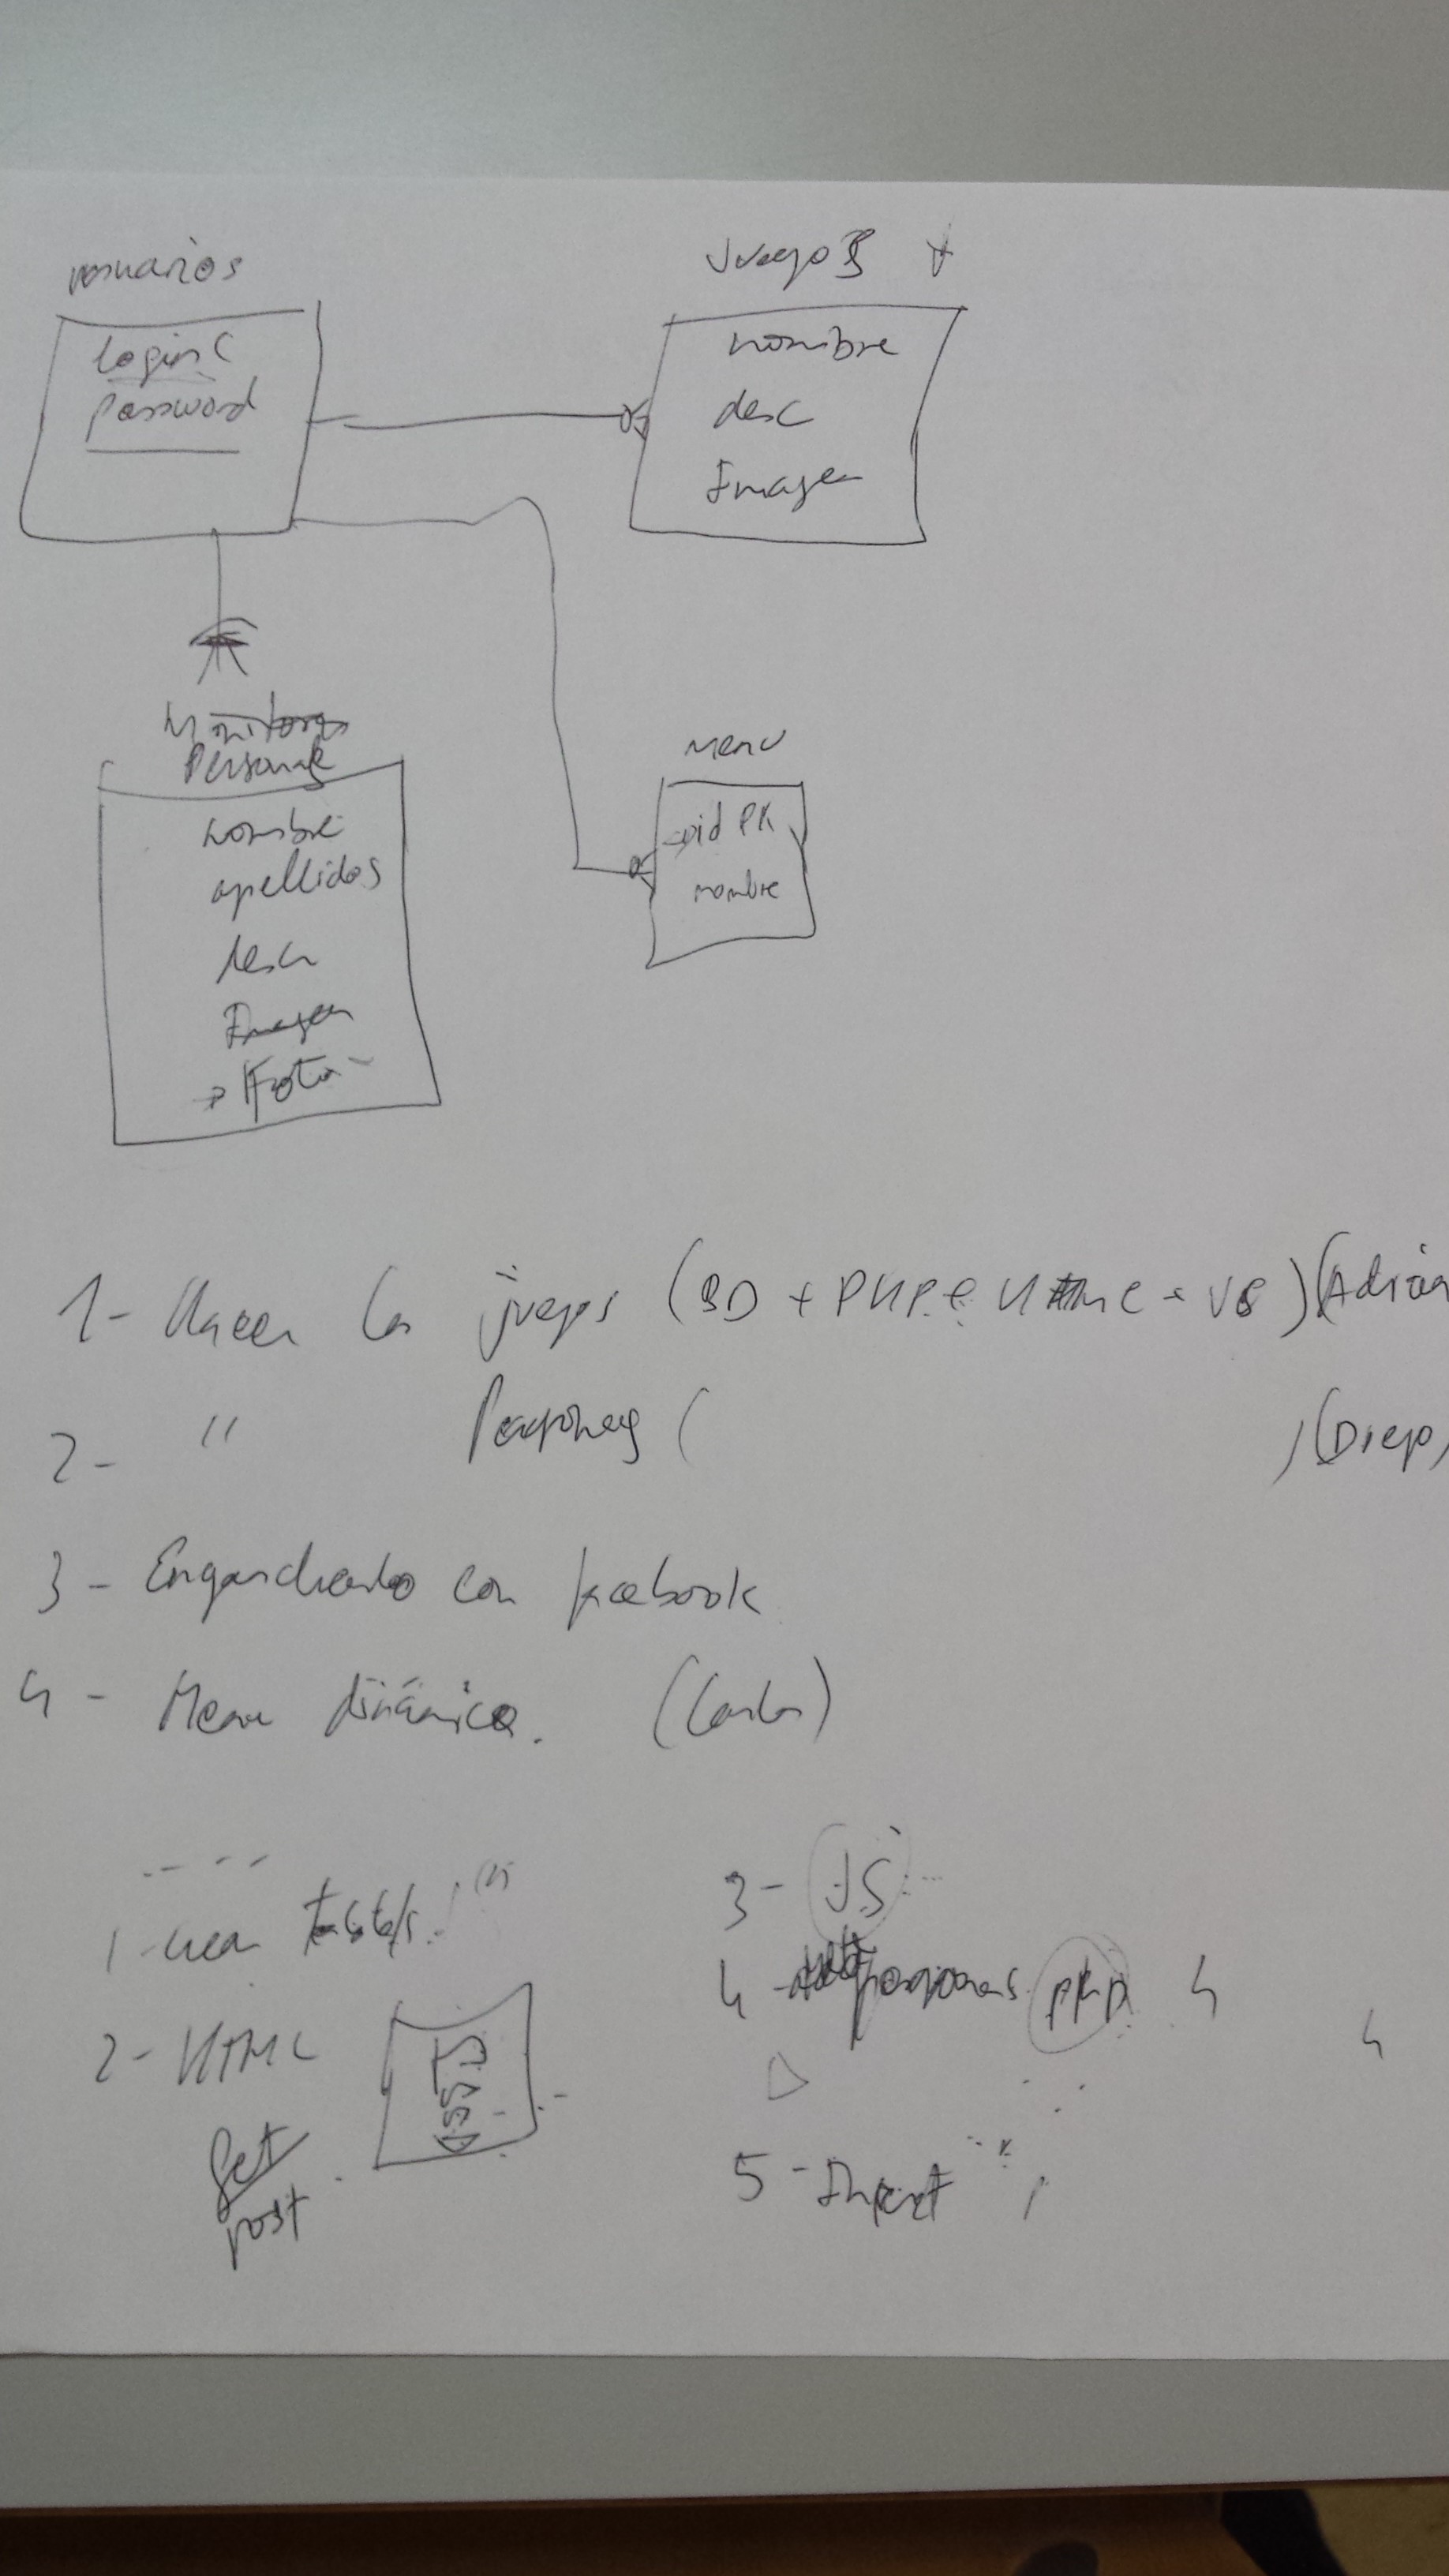 usuarios
login
password
Juegos
nombre
desc
Imagen
Monitores
Persona
nombre
apellidos
desc
Imagen
Foto
Menu
id PK
nombre
1- Hacer los juegos (BD + PHP + HTML + JS) (Adrian
2- " Personas ( ) (Diego)
3- Enganchando con facebook
4- Menu dinámico. (Carlos)
1- crear tablas
2- HTML
Get
post
3- JS
4- personas php 4
4
5- Insert